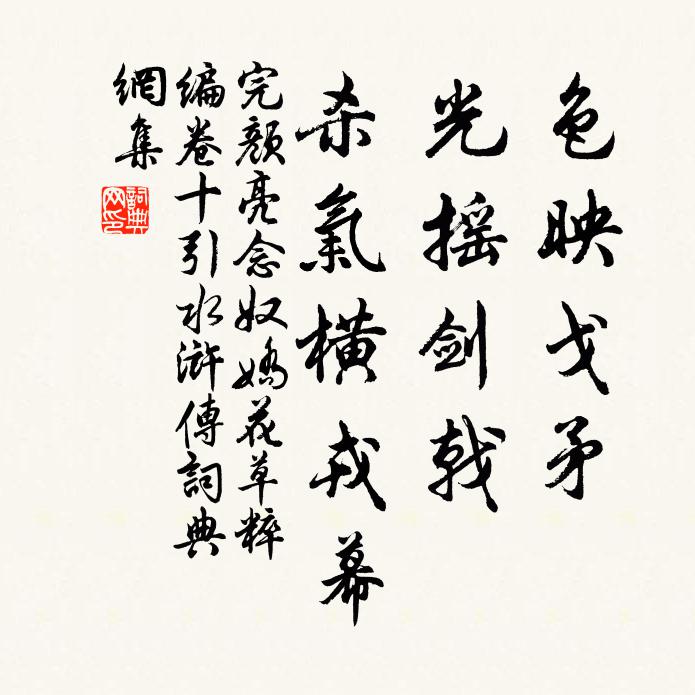 色映戈矛
光摇剑戟
杀氣横戎幕
完顏亮念奴嬌花草粹
编卷十引水滸傳詞典
網集
詞典
网印